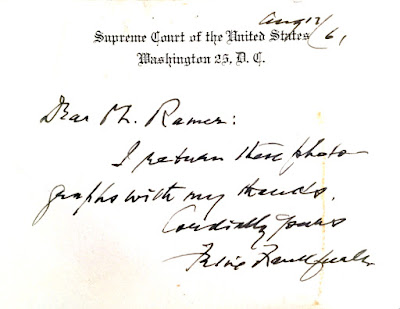 Aug 12/61
Supreme Court of the United States
Washington 25, D. C.
Dear Mr. Ramer:
I return these photo-
graphs with my thanks.
Cordially yours
Felix Frankfurter